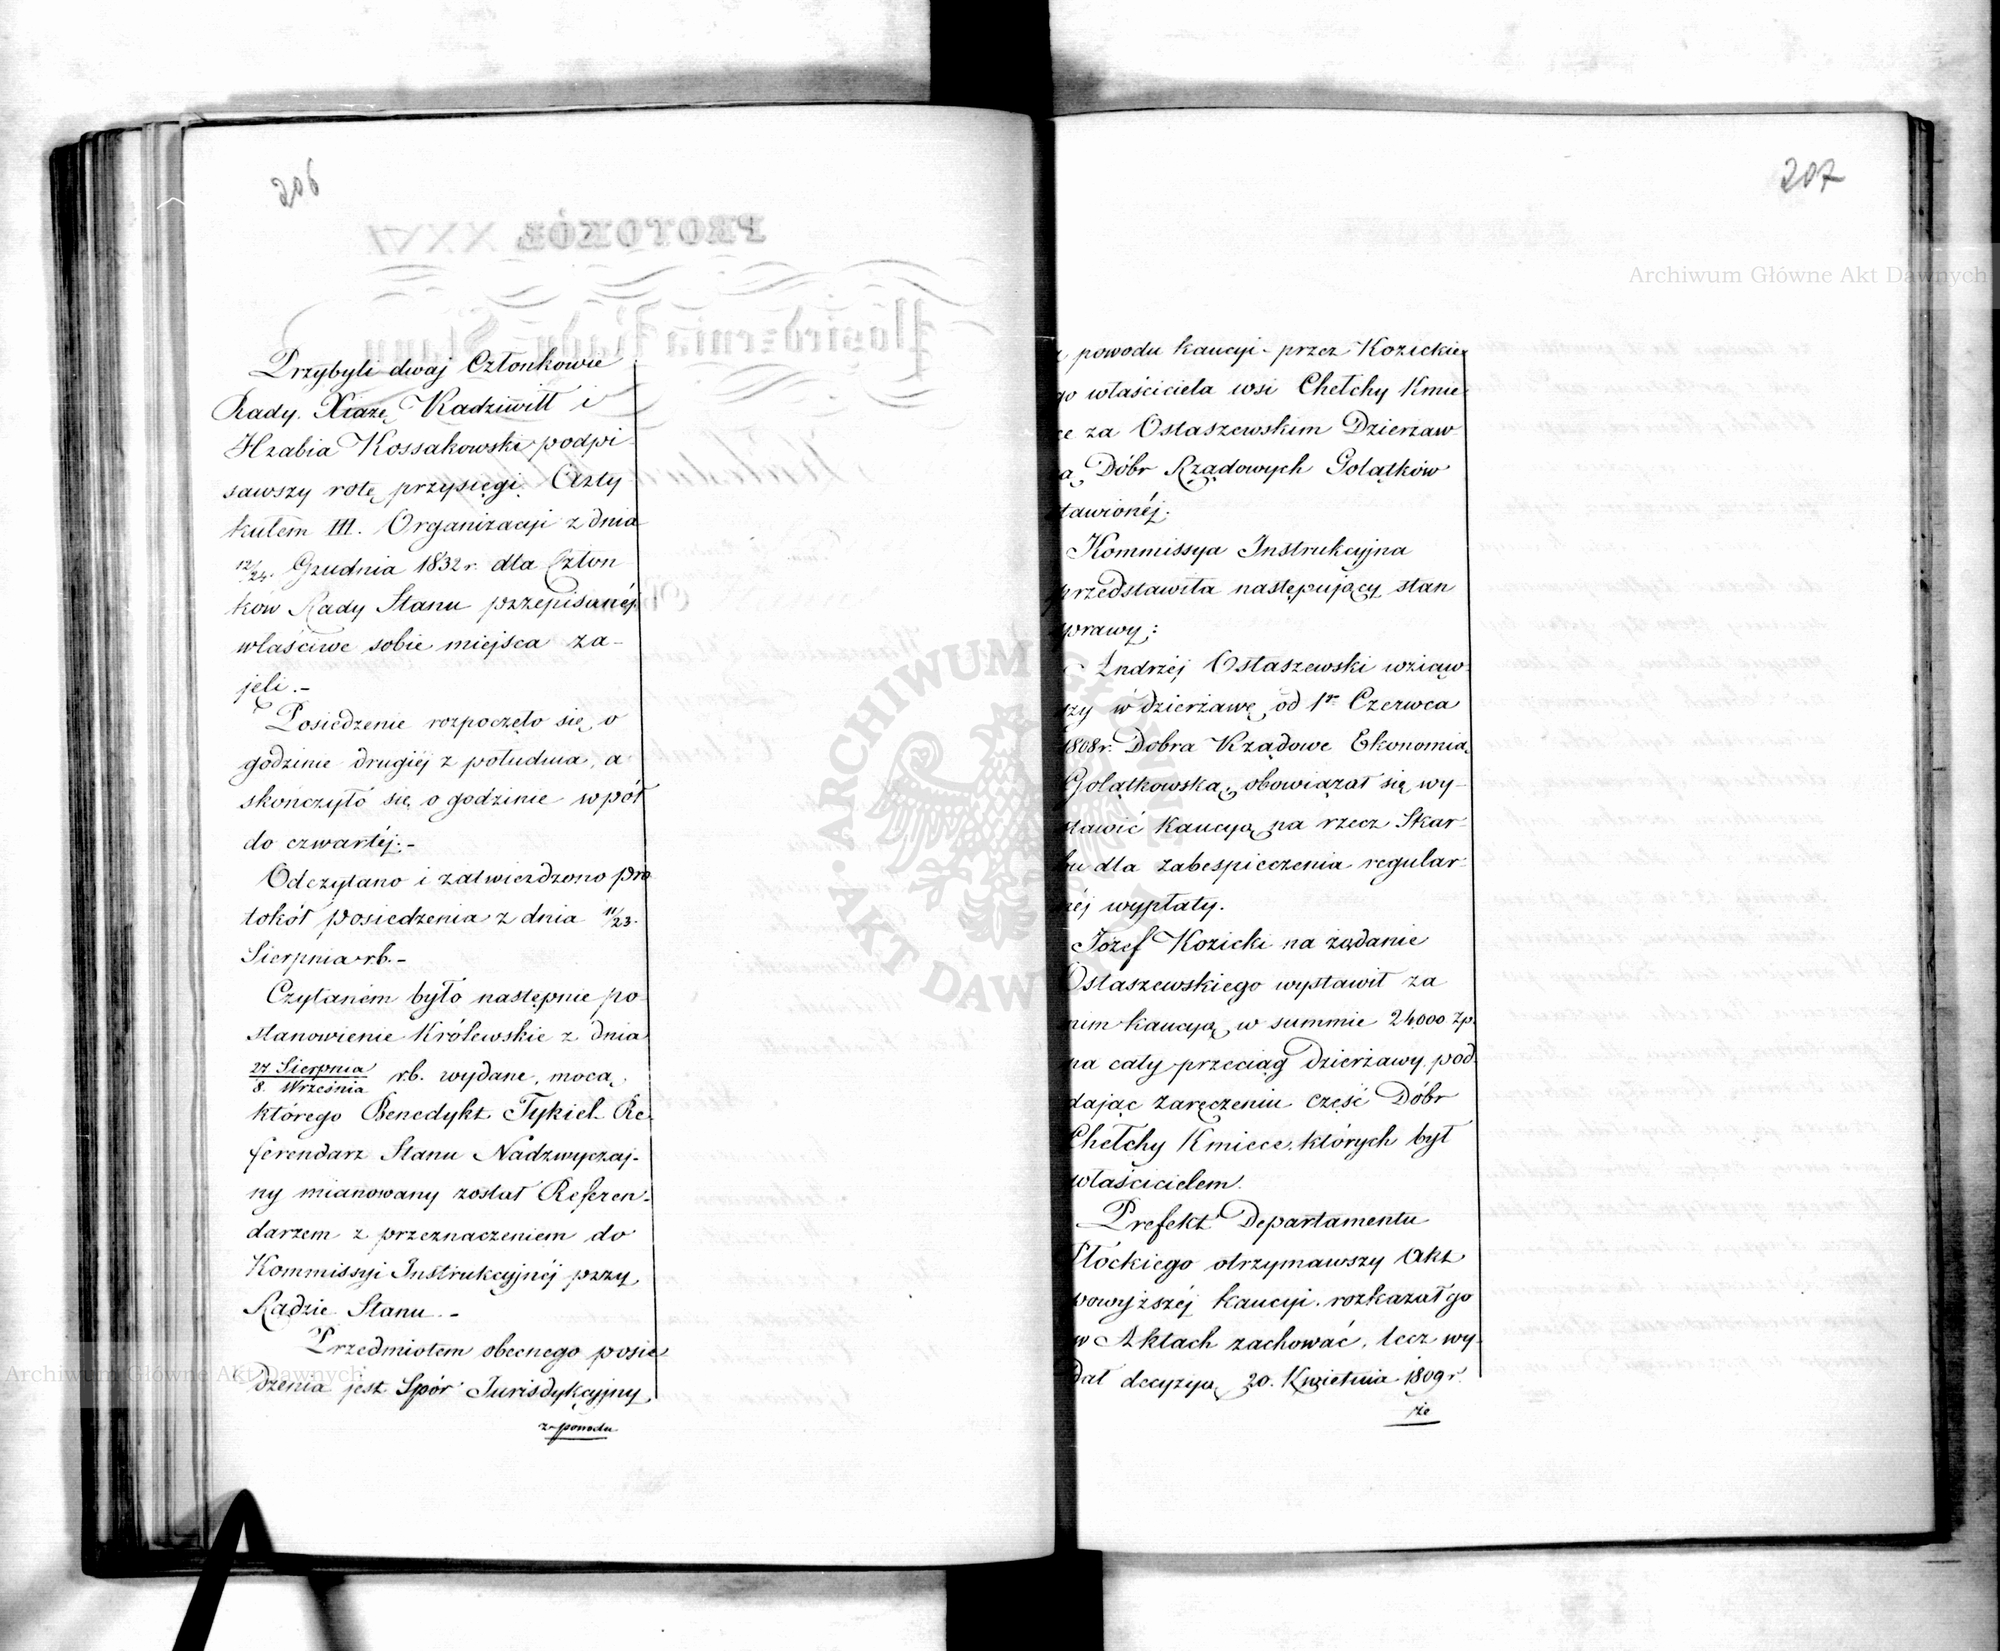 206
Przybyli dwaj Członkowie
Rady, Xiąże Radziwiłł i
Hrabia Kossakowski podpi
sawszy rotę przysięgi Arty
kułem III. Organizacyi z dnia
12/24. Grudnia 1832 r. dla Człon
ków Rady Stanu przepisanéj
właściwe sobie miejsca za-
jęli.-
Posiedzenie rozpoczęło się o
godzinie drugiéj z południa, a
skończyło się o godzinie wpół
do czwartéj.-
Odczytano i zatwierdzono pro
tokół posiedzenia z dnia 11/23.
Sierpnia r.b.-
Czytaném było następnie po-
stanowienie Królewskie z dnia
27 Sierpnia/8. Września r.b. wydane, mocą
którego Benedykt Tykiel Re-
ferendarz Stanu Nadzwyczaj-
ny mianowany został Referen-
darzem z przeznaczeniem do
Kommissyi Instrukcyjnéj przy
Radzie Stanu.-
Przedmiotem obecnego posie
dzenia jest Spór Jurisdykcyjny
z powodu
207
z powodu kaucyi przez Kozickie
go właściciela wsi Chełchy Kmie
ce za Ostaszewskim Dzierżaw
cą Dóbr Rządowych Gołątków
stawionéj.
Kommissya Instrukcyjna
przedstawiła następujący stan
sprawy:
Andrzéj Ostaszewski wziąw-
szy w dzierżawę od 1go Czerwca
1808 r. Dobra Rządowe Ekonomią
Gołątkowską, obowiązał się wy-
stawić kaucyą na rzecz Skar-
bu dla zabespieczenia regular-
néj wypłaty.
Józef Kozicki na żądanie
Ostaszewskiego wystawił za
nim kaucyą w summie 24,000 zp.
na cały przeciąg dzierżawy, pod
dając zaręczeniu część Dóbr
Chełchy Kmiece, których był
właścicielem.
Prefekt Departamentu
Płóckiego otrzymawszy Akt
powyższéj kaucyi, rozkazał go
w Aktach zachować, lecz wy-
dał decyzyą 20. Kwietnia 1809 r.
że
Archiwum Główne Akt Dawnych
Archiwum Główne Akt Dawnych
ARCHIWUM GŁÓWNE AKT DAWNYCH